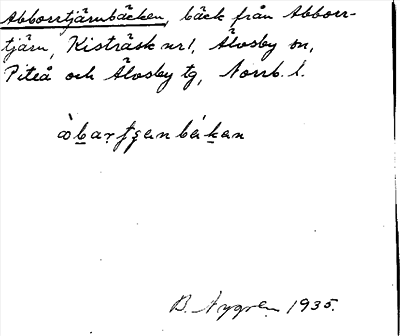 Abborrtjärnbäcken, bäck från Abborr-
tjärn, Kisträsk nr 1, Älvsby sn,
Piteå och Älvsby tg, Norrb. l.
B. Nygren 1935.